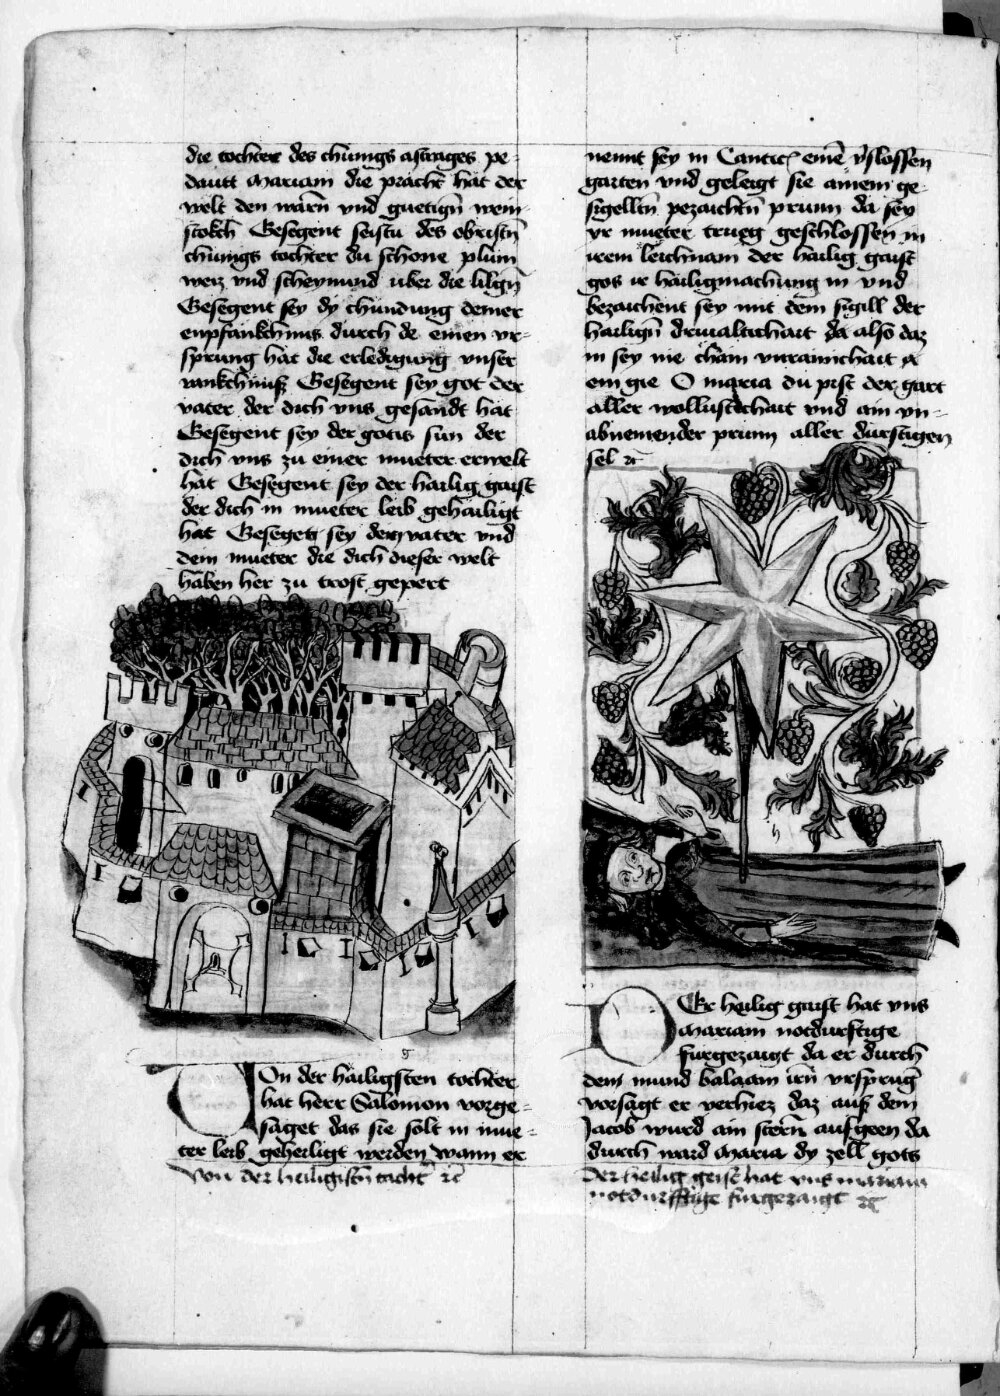 die tochter des chunigs astrages pe-
dautt Mariam die pracht hat der
welt den warn vnd guetign wein-
stokch Gesegent seistu des obristn
chunigs tochter du schone plum
weis vnd scheymund uber die lilgn
Gesegent sey dy chundung deiner
enpfankchnus durch de einen vr-
sprung hat die erledigung vnser
vankchnuß Gesegent sey got der
vater der dich vns gesandt hat
Gesegent sey der gotis sun der
dich vns zu einer mueter erwelt
hat Gesegent sey der hailig gaist
der dich in mueter leib gehailigt
hat Gesegen sey dem vater vnd
dem mueter die dich dieser welt
haben her zu trost gepert
Von der hailigsten tochter
hat herr Salomon vorge-
saget das sie solt in mue-
ter leib geheiligt werden wann er
Von der heiligistn tacht ꝛc
nennt sey in Cantic emē v̉slossen
garten vnd geleigt sie ainem ge-
sigelltn pezaichtn prunn da sey
yr mueter trueg geschlossen in
irem leichnam der hailig gaist
gos ir hailigmachung in vnd
bezaichent sey mit dem sigill der
hailign drivaltichait da also daz
in sey nie cham vnrainichait
ein gie O maria du pist der gart
aller wollustichait vnd ain vn-
abnemender prunn aller durstigen
sel ꝛc
Der heilig gaist hat vns
Mariam notdurftige
furgezaigt da er durch
dem mund balaam irn vrsprug
vorsagt er verhiez daz auß dem
Jacob wurd ain stern aufgeen da
durch ward Maria dy zell gots
Der heilig geist hat vns mariam
notdurfftige furgezaigt ꝛc